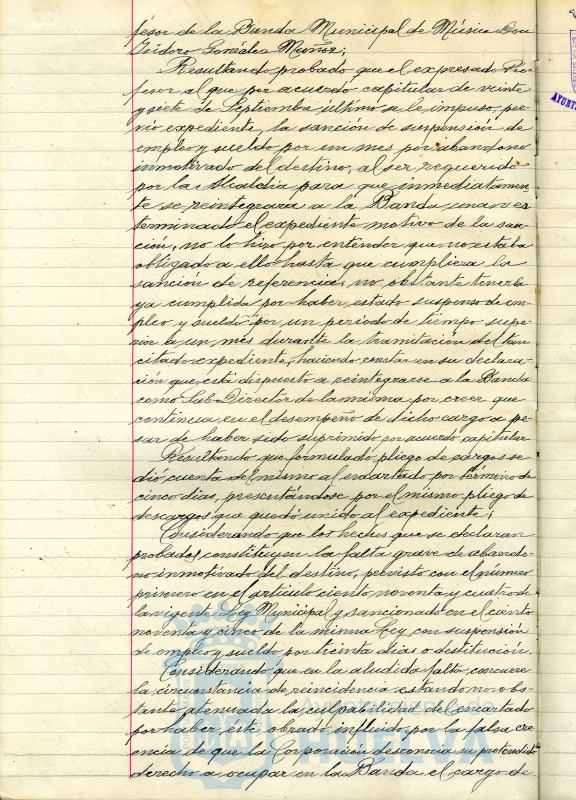 fesor de la Banda Municipal de Música Don
Isidoro González Muñoz;
Resultando probado que el expresado Pro-
fesor al que por acuerdo capitular de veinte
y siete de Septiembre último se le impuso, pre-
vio expediente, la sanción de suspensión de
empleo y sueldo por un mes por abandono
inmotivado del destino, al ser requerido
por la Alcaldia para que inmediatamen-
te se reintegrara a la Banda una vez
terminado el expediente motivo de la san-
ción, no lo hizo por entender que no estaba
obligado a ello hasta que cumpliera la
sanción de referencia, no obstante tenerla
ya cumplida por haber estado suspenso de em-
pleo y sueldo por un periodo de tiempo supe-
rior a un mes durante la tramitación del tan
citado expediente, haciendo constar en su declara-
ción que está dispuesto a reintegrarse a la Banda
como Sub-Director de la misma por creer que
continua en el desempeño de dicho cargo a pe-
sar de haber sido suprimido por acuerdo capitular
Resultando que formulado pliego de cargos se
dió cuenta del mismo al encartado por término de
cinco dias, presentándose por el mismo pliego de
descargos que quedó unido al expediente;
Considerando que los hechos que se declaran
probados, constituyen la falta grave de abando-
no inmotivado del destino, previsto con el número
primero en el artículo ciento noventa y cuatro de
la vigente Ley Municipal y sancionado en el ciento
noventa y cinco de la misma Ley, con suspensión
de empleo y sueldo por treinta dias o destitución.
Considerando que en la aludida falta concurre
la circunstancia de reincidencia estando no obs-
tante atenuada la culpabilidad del encartado
por haber éste obrado influido por la falsa cre-
encia de que la Corporación desconocia su pretendido
derecho a ocupar en la Banda el cargo de